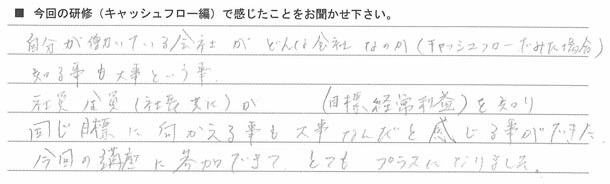 ■ 今回の研修（キャッシュフロー編）で感じたことをお聞かせ下さい。
自分が働いている会社がどんな会社なのか（キャッシュフローでみた場合）
知る事も大事という事。
社員全員（社長共に）が（目標経常利益）を知り
同じ目標に向かえる事も大事なんだと感じる事ができた。
今回の講座に参加できて、とてもプラスになりました。